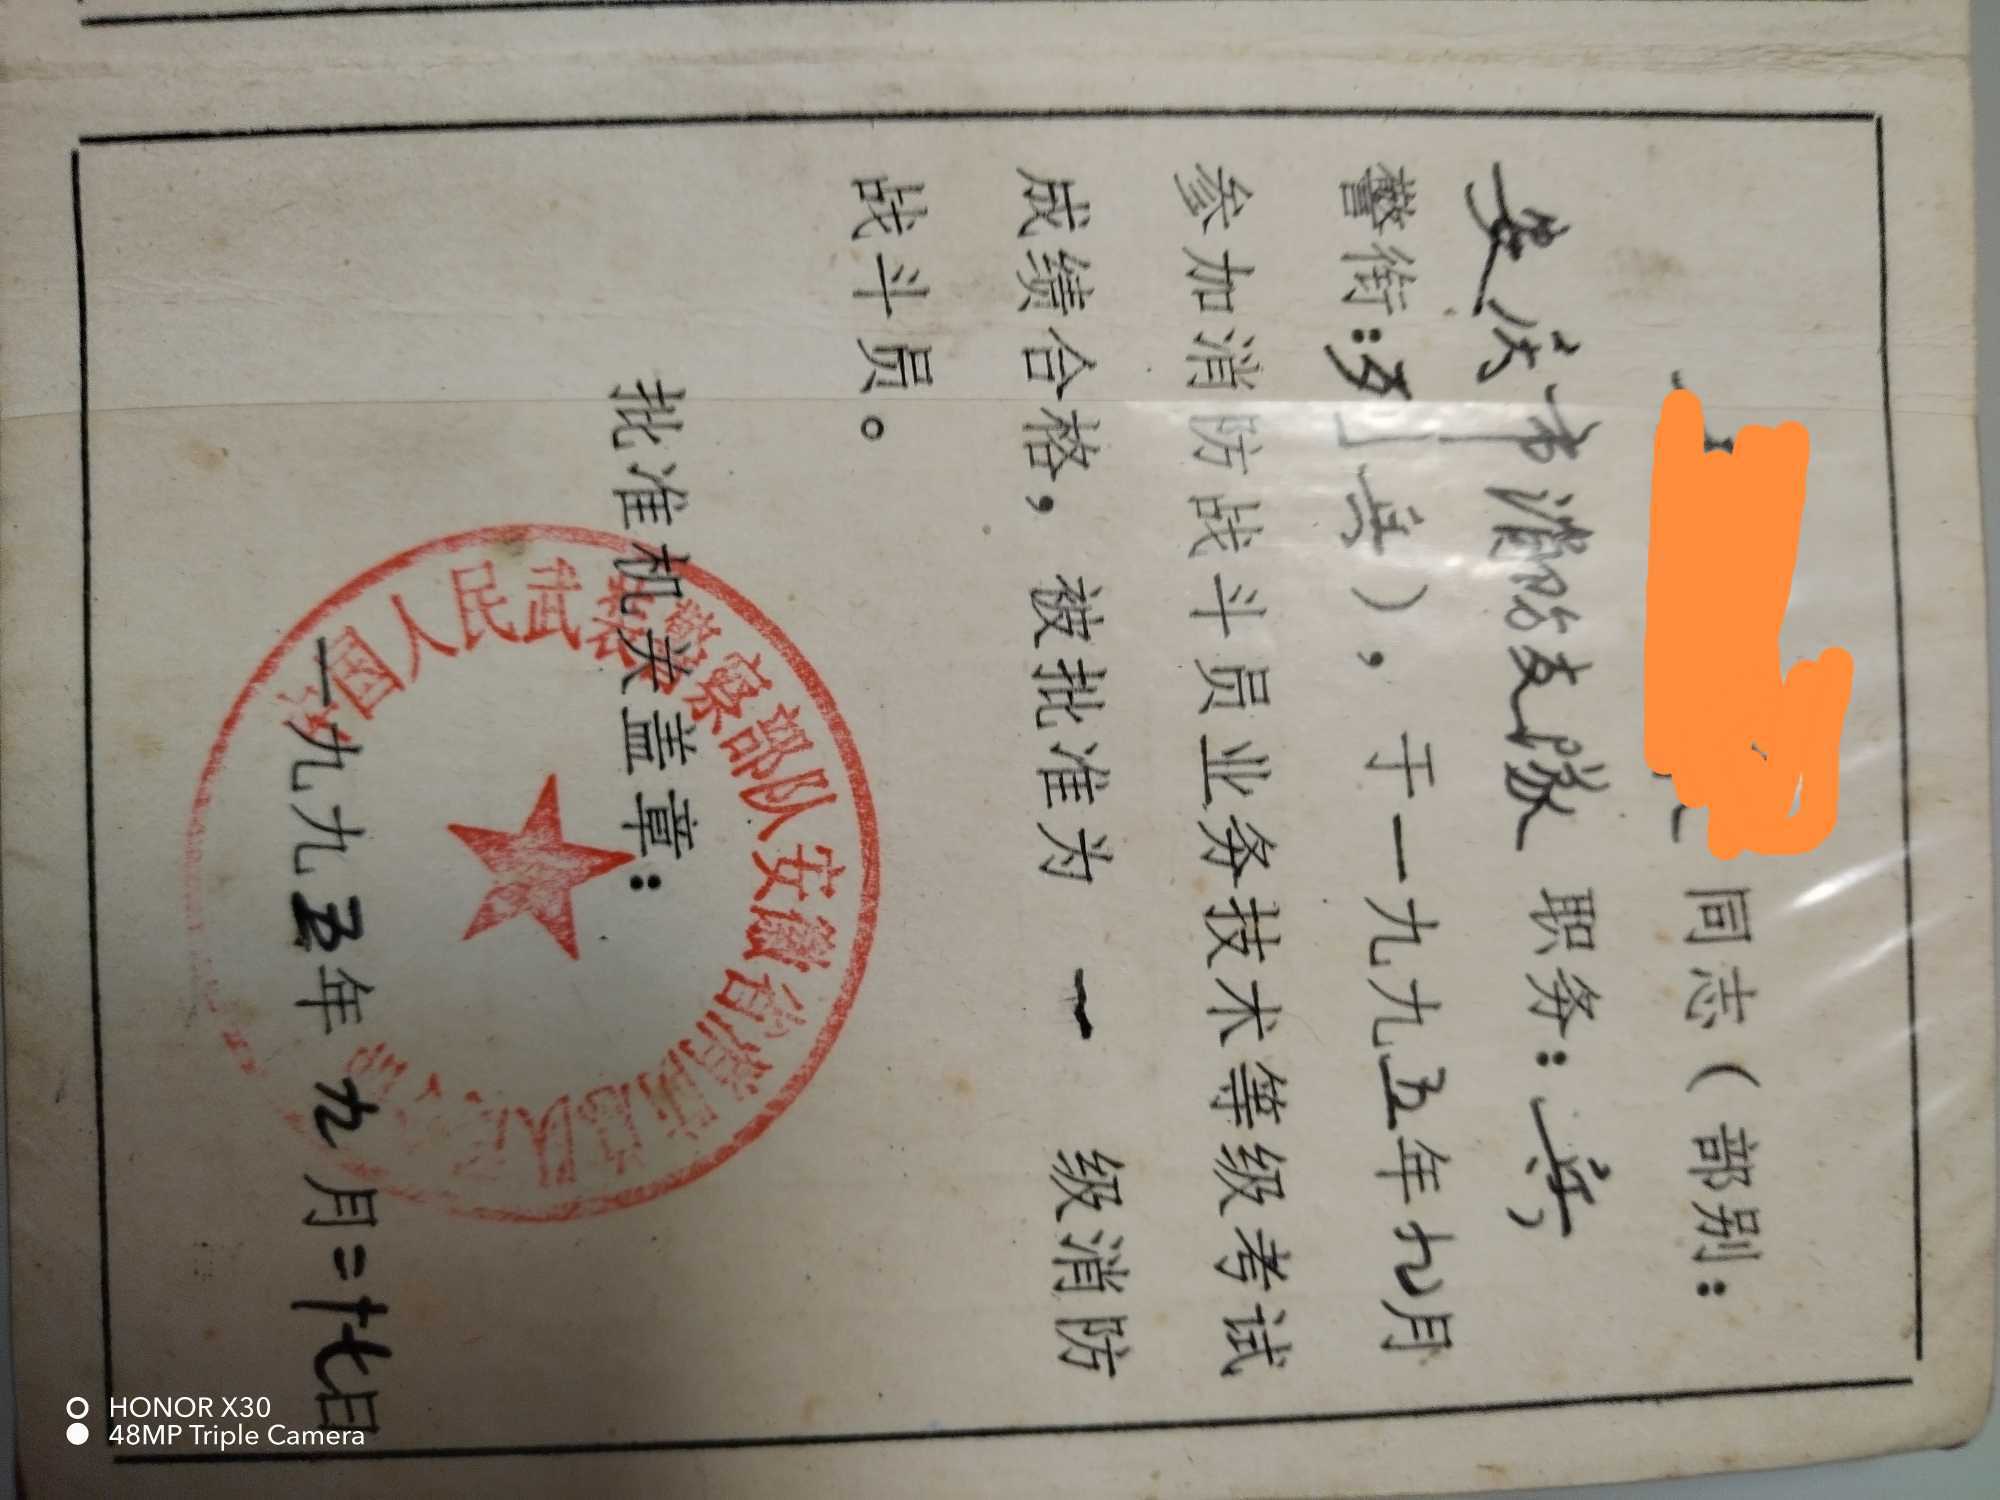 同志（部别：
安庆市消防支队 职务：兵，
警衔：列兵），于一九九五年九月
参加消防战斗员业务技术等级考试
成绩合格，被批准为 一 级消防
战斗员。
批准机关盖章：
国人民武装警察部队安徽省消防总队
一九九五年九月二十七日
HONOR X30
48MP Triple Camera